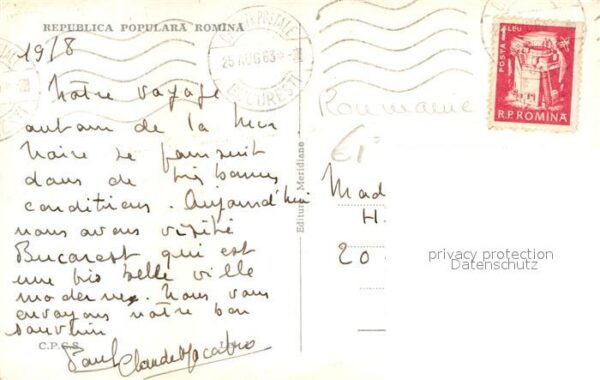 REPUBLICA POPULARĂ ROMÎNĂ
19/8
Notre voyage
autour de la Mer
Noire se poursuit
dans de très bonnes
conditions. Aujourd'hui
nous avons visité
Bucarest qui est
une très belle ville
moderne. Nous vous
envoyons notre bon
souvenir
Paul Claude
C.P.C.S.
Editura Meridiane
25 AUG 63
BUCUREȘTI
Roumanie
POSTA 1 LEU
R.P. ROMINA
Mad
H.
20
privacy protection
Datenschutz